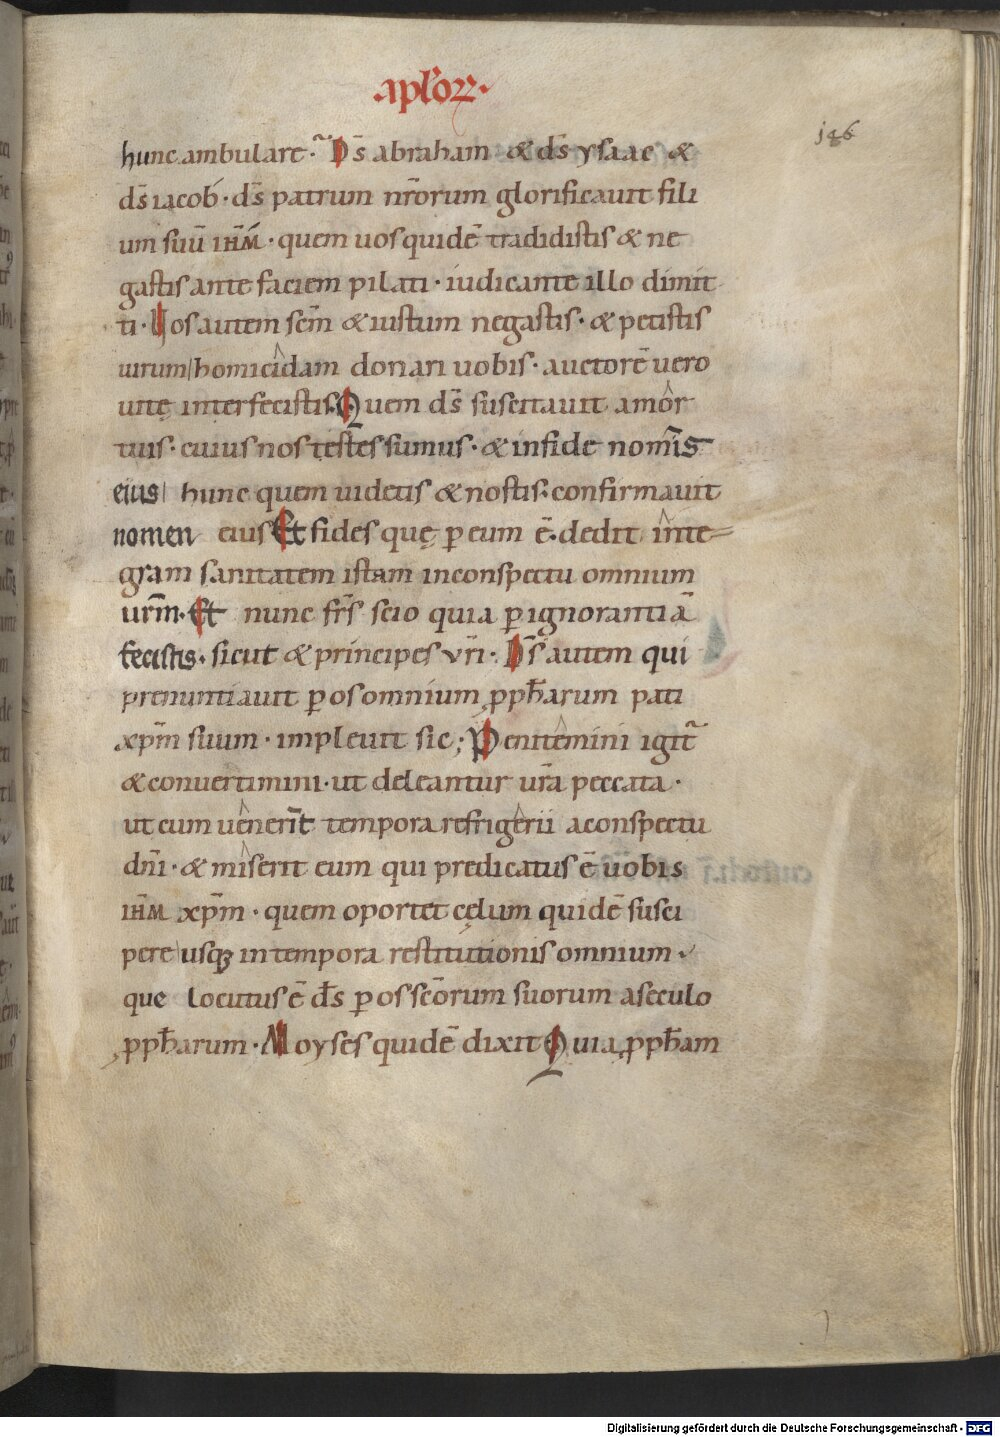 apl'oꝝ·
j86
hunc ambulare· D̄s abraham & d̄s ysaac &
d̄s iacob· d̄s patrum nr̄orum glorificauit fili
um suū ih̄m· quem uos quidē tradidistis & ne
gastis ante faciem pilati· iudicante illo dimit
ti· Uos autem sc̄m & iustum negastis· & petistis
uirum homicidam donari uobis· auctorē uero
uitę interfecistis. Quem d̄s suscitauit a mor
tuis· cuius nos testes sumus· & in fide nom̄is
eius hunc quem uidetis & nostis· confirmauit
nomen eius Et fides quę ꝑ eum ē· dedit inte
gram sanitatem istam in conspectu omnium
ur̄m· Et nunc fr̄s scio quia ꝑ ignorantiā
fecistis· sicut & principes vr̄i· D̄s autem qui
prenuntiauit ꝑ os omnium ꝓph̄arum pati
xp̄m suum· impleuit sic; Penitemini igit̄
& conuertimini· ut deleantur ur̄a peccata·
ut cum uenerīt tempora refrigerii a conspectu
dn̄i· & miserit eum qui predicatus ē uobis
ih̄m xp̄m· quem oportet cęlum quidē susci
pere usqꝫ in tempora restitutionis omnium
que locutus ē d̄s ꝑ os sc̄orum suorum a seculo
ꝓph̄arum· Moyses quidē dixit Quia ꝓph̄am
Digitalisierung gefördert durch die Deutsche Forschungsgemeinschaft - DFG